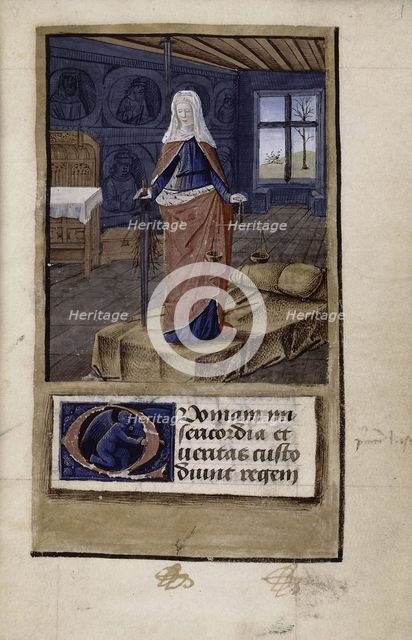 Heritage Heritage
Heritage Heritage
Heritage Heritage
Quoniam mi
sericordia et
veritas custo
diunt regem